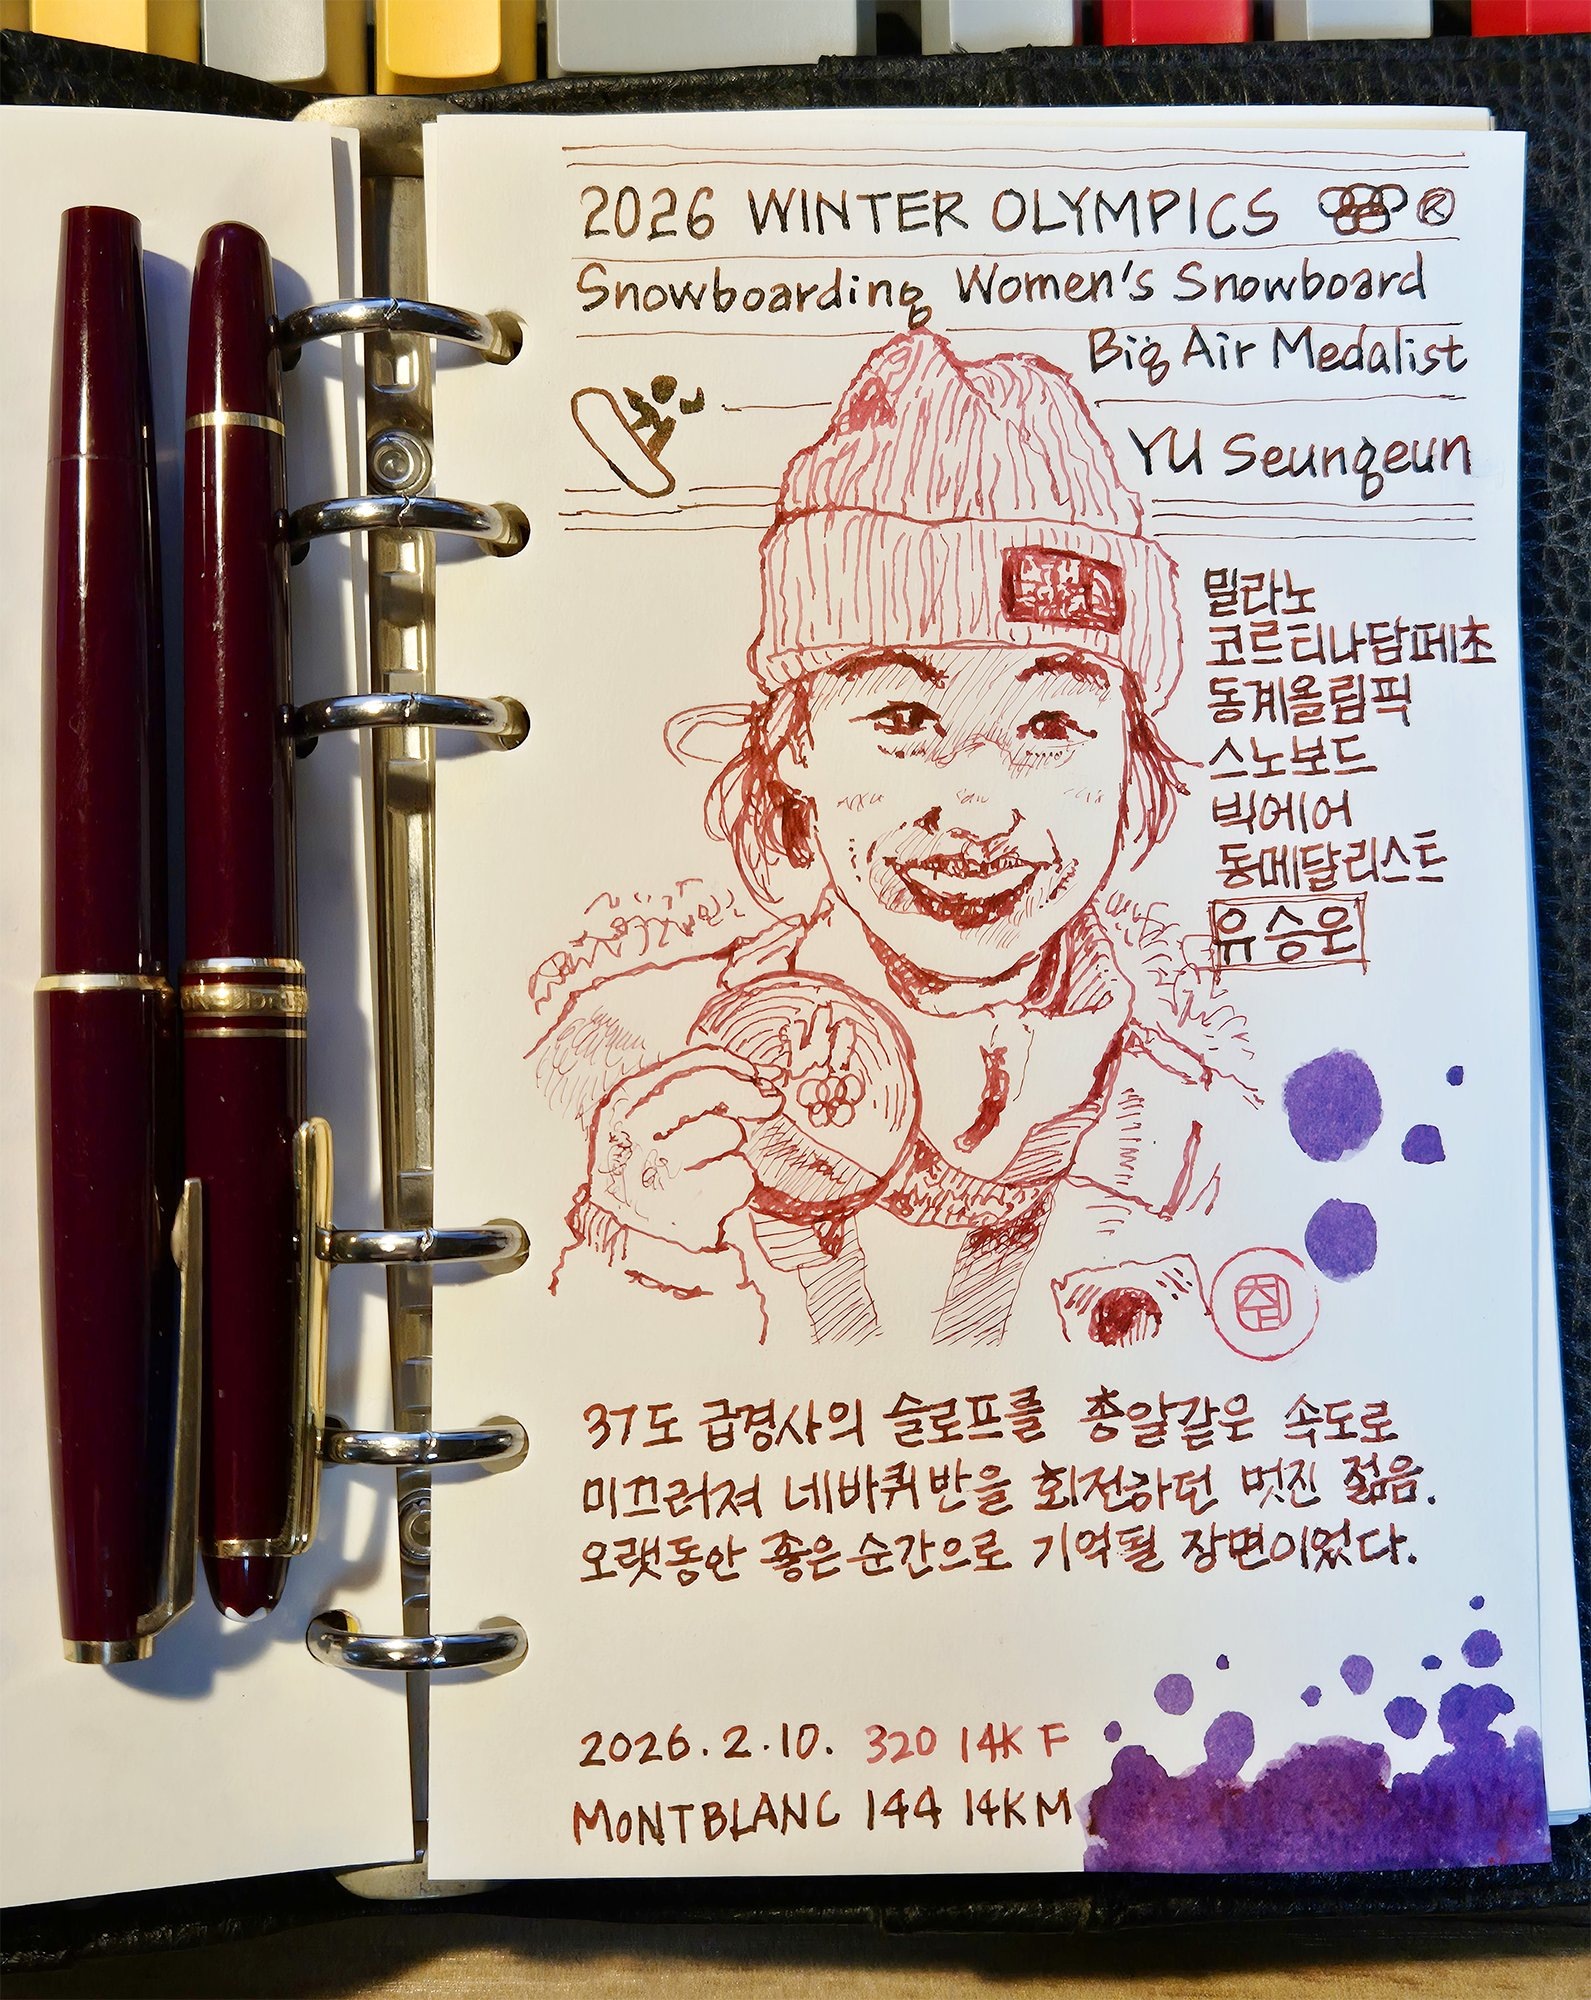 2026 WINTER OLYMPICS ®
Snowboarding Women's Snowboard
Big Air Medalist
YU Seungeun
밀라노
코르티나담페초
동계올림픽
스노보드
빅에어
동메달리스트
유승은
37도 급경사의 슬로프를 총알같은 속도로
미끄러져 네바퀴반을 회전하던 멋진 젊음.
오랫동안 좋은 순간으로 기억될 장면이었다.
2026.2.10. 320 14K F
MONTBLANC 144 14K M